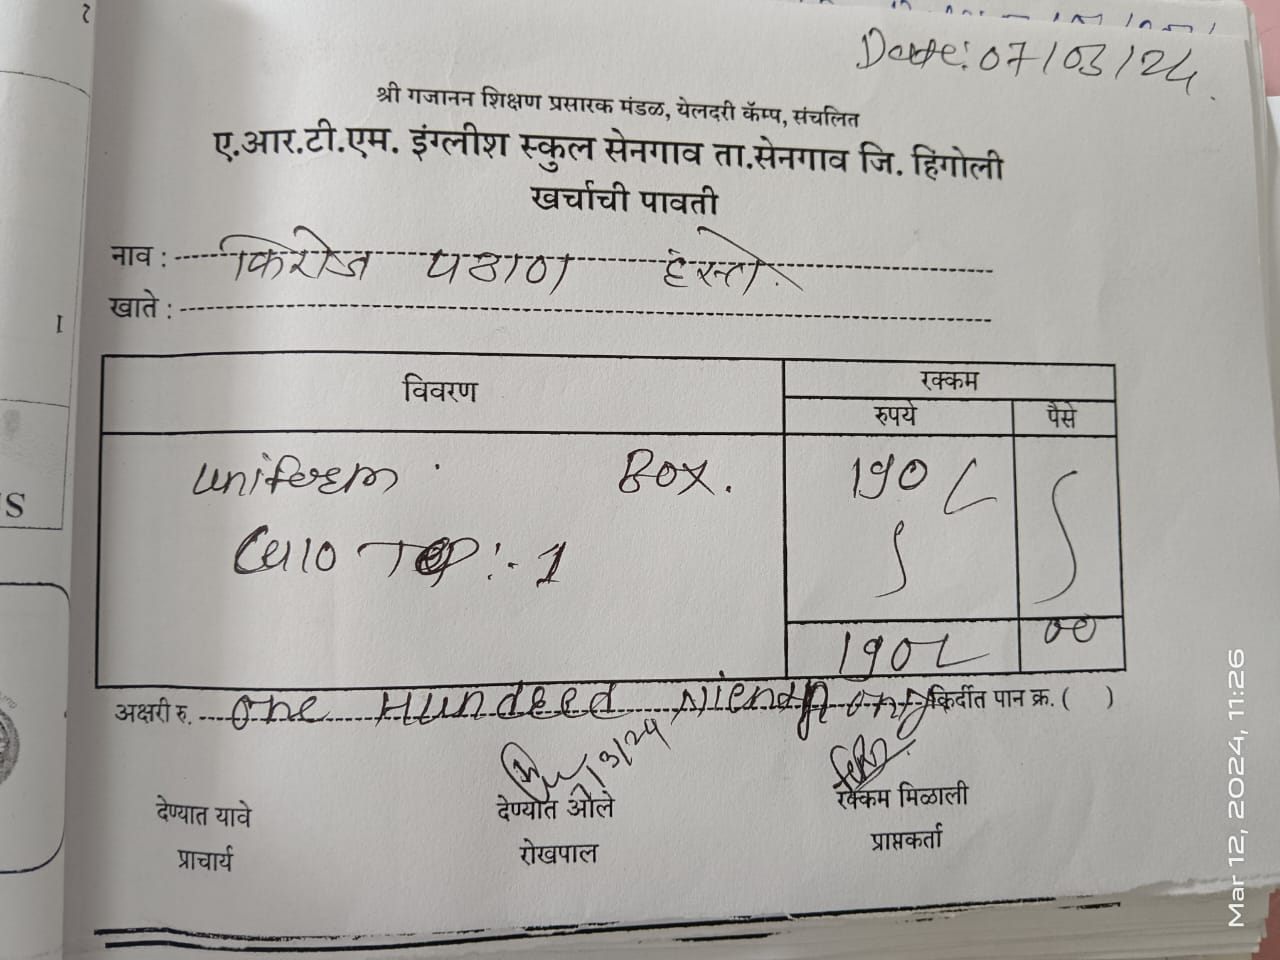 Date: 07/03/24.
श्री गजानन शिक्षण प्रसारक मंडळ, येलदरी कॅम्प, संचलित
ए.आर.टी.एम. इंग्लीश स्कुल सेनगाव ता.सेनगाव जि. हिंगोली
खर्चाची पावती
नाव : फिरोज पठाण हस्ते.
खाते :
विवरण रक्कम
रुपये पैसे
uniform Box. 190/
Cello Tep :- 1
190/ 00
अक्षरी रु. One Hundred only किर्दीत पान क्र. ( )
/3/24
देण्यात यावे देण्यात आले रक्कम मिळाली
प्राचार्य रोखपाल प्राप्तकर्ता
Mar 12, 2024, 11:26